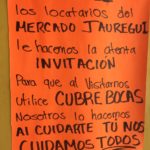 los locatarios del
MERCADO JAUREGUI
le hacemos la atenta
INVITACIÓN
Para que al Visitarnos
Utilice CUBRE BOCAS
Nosotros lo hacemos
AL CUIDARTE TU NOS
CUIDAMOS TODOS